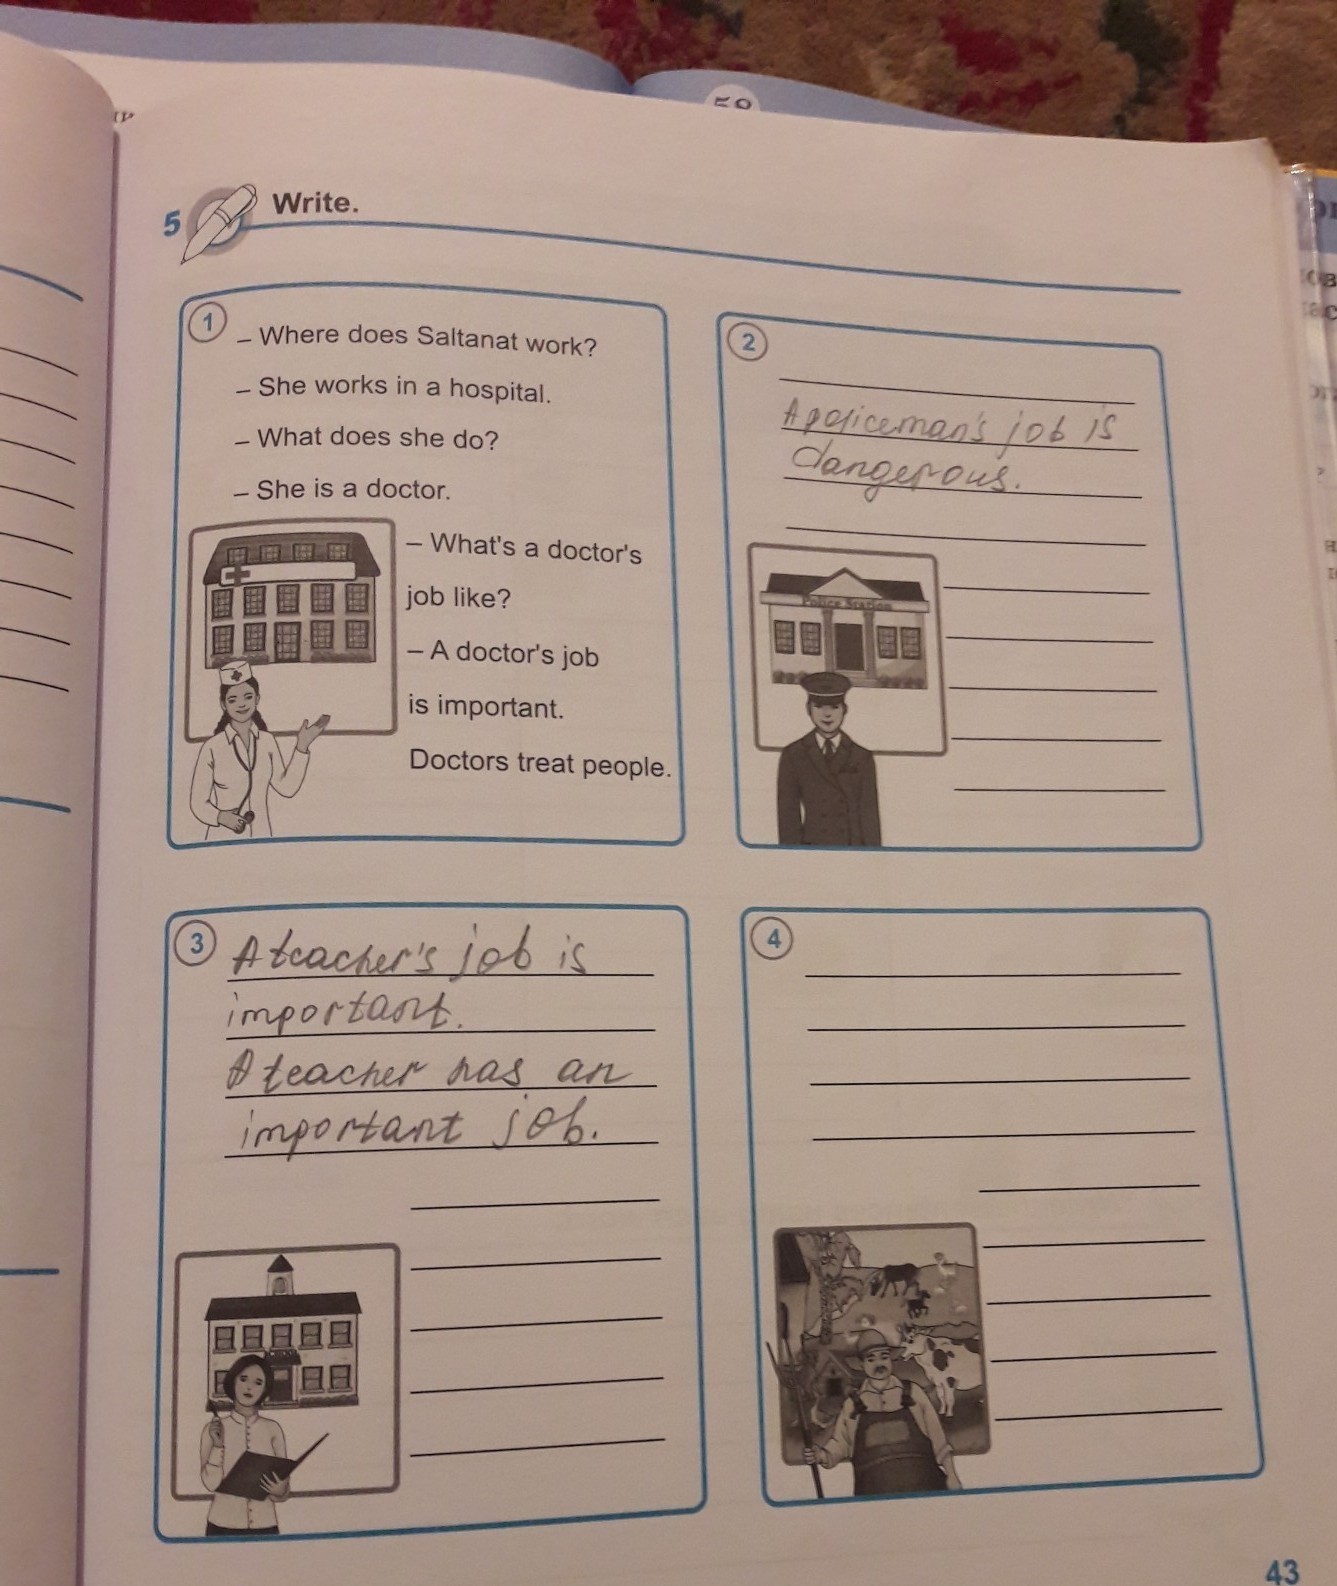 5 Write.
1
– Where does Saltanat work?
– She works in a hospital.
– What does she do?
– She is a doctor.
– What's a doctor's
job like?
– A doctor's job
is important.
Doctors treat people.
2
A policeman's job is
dangerous.
Police Station
3
A teacher's job is
important.
A teacher has an
important job.
4
43